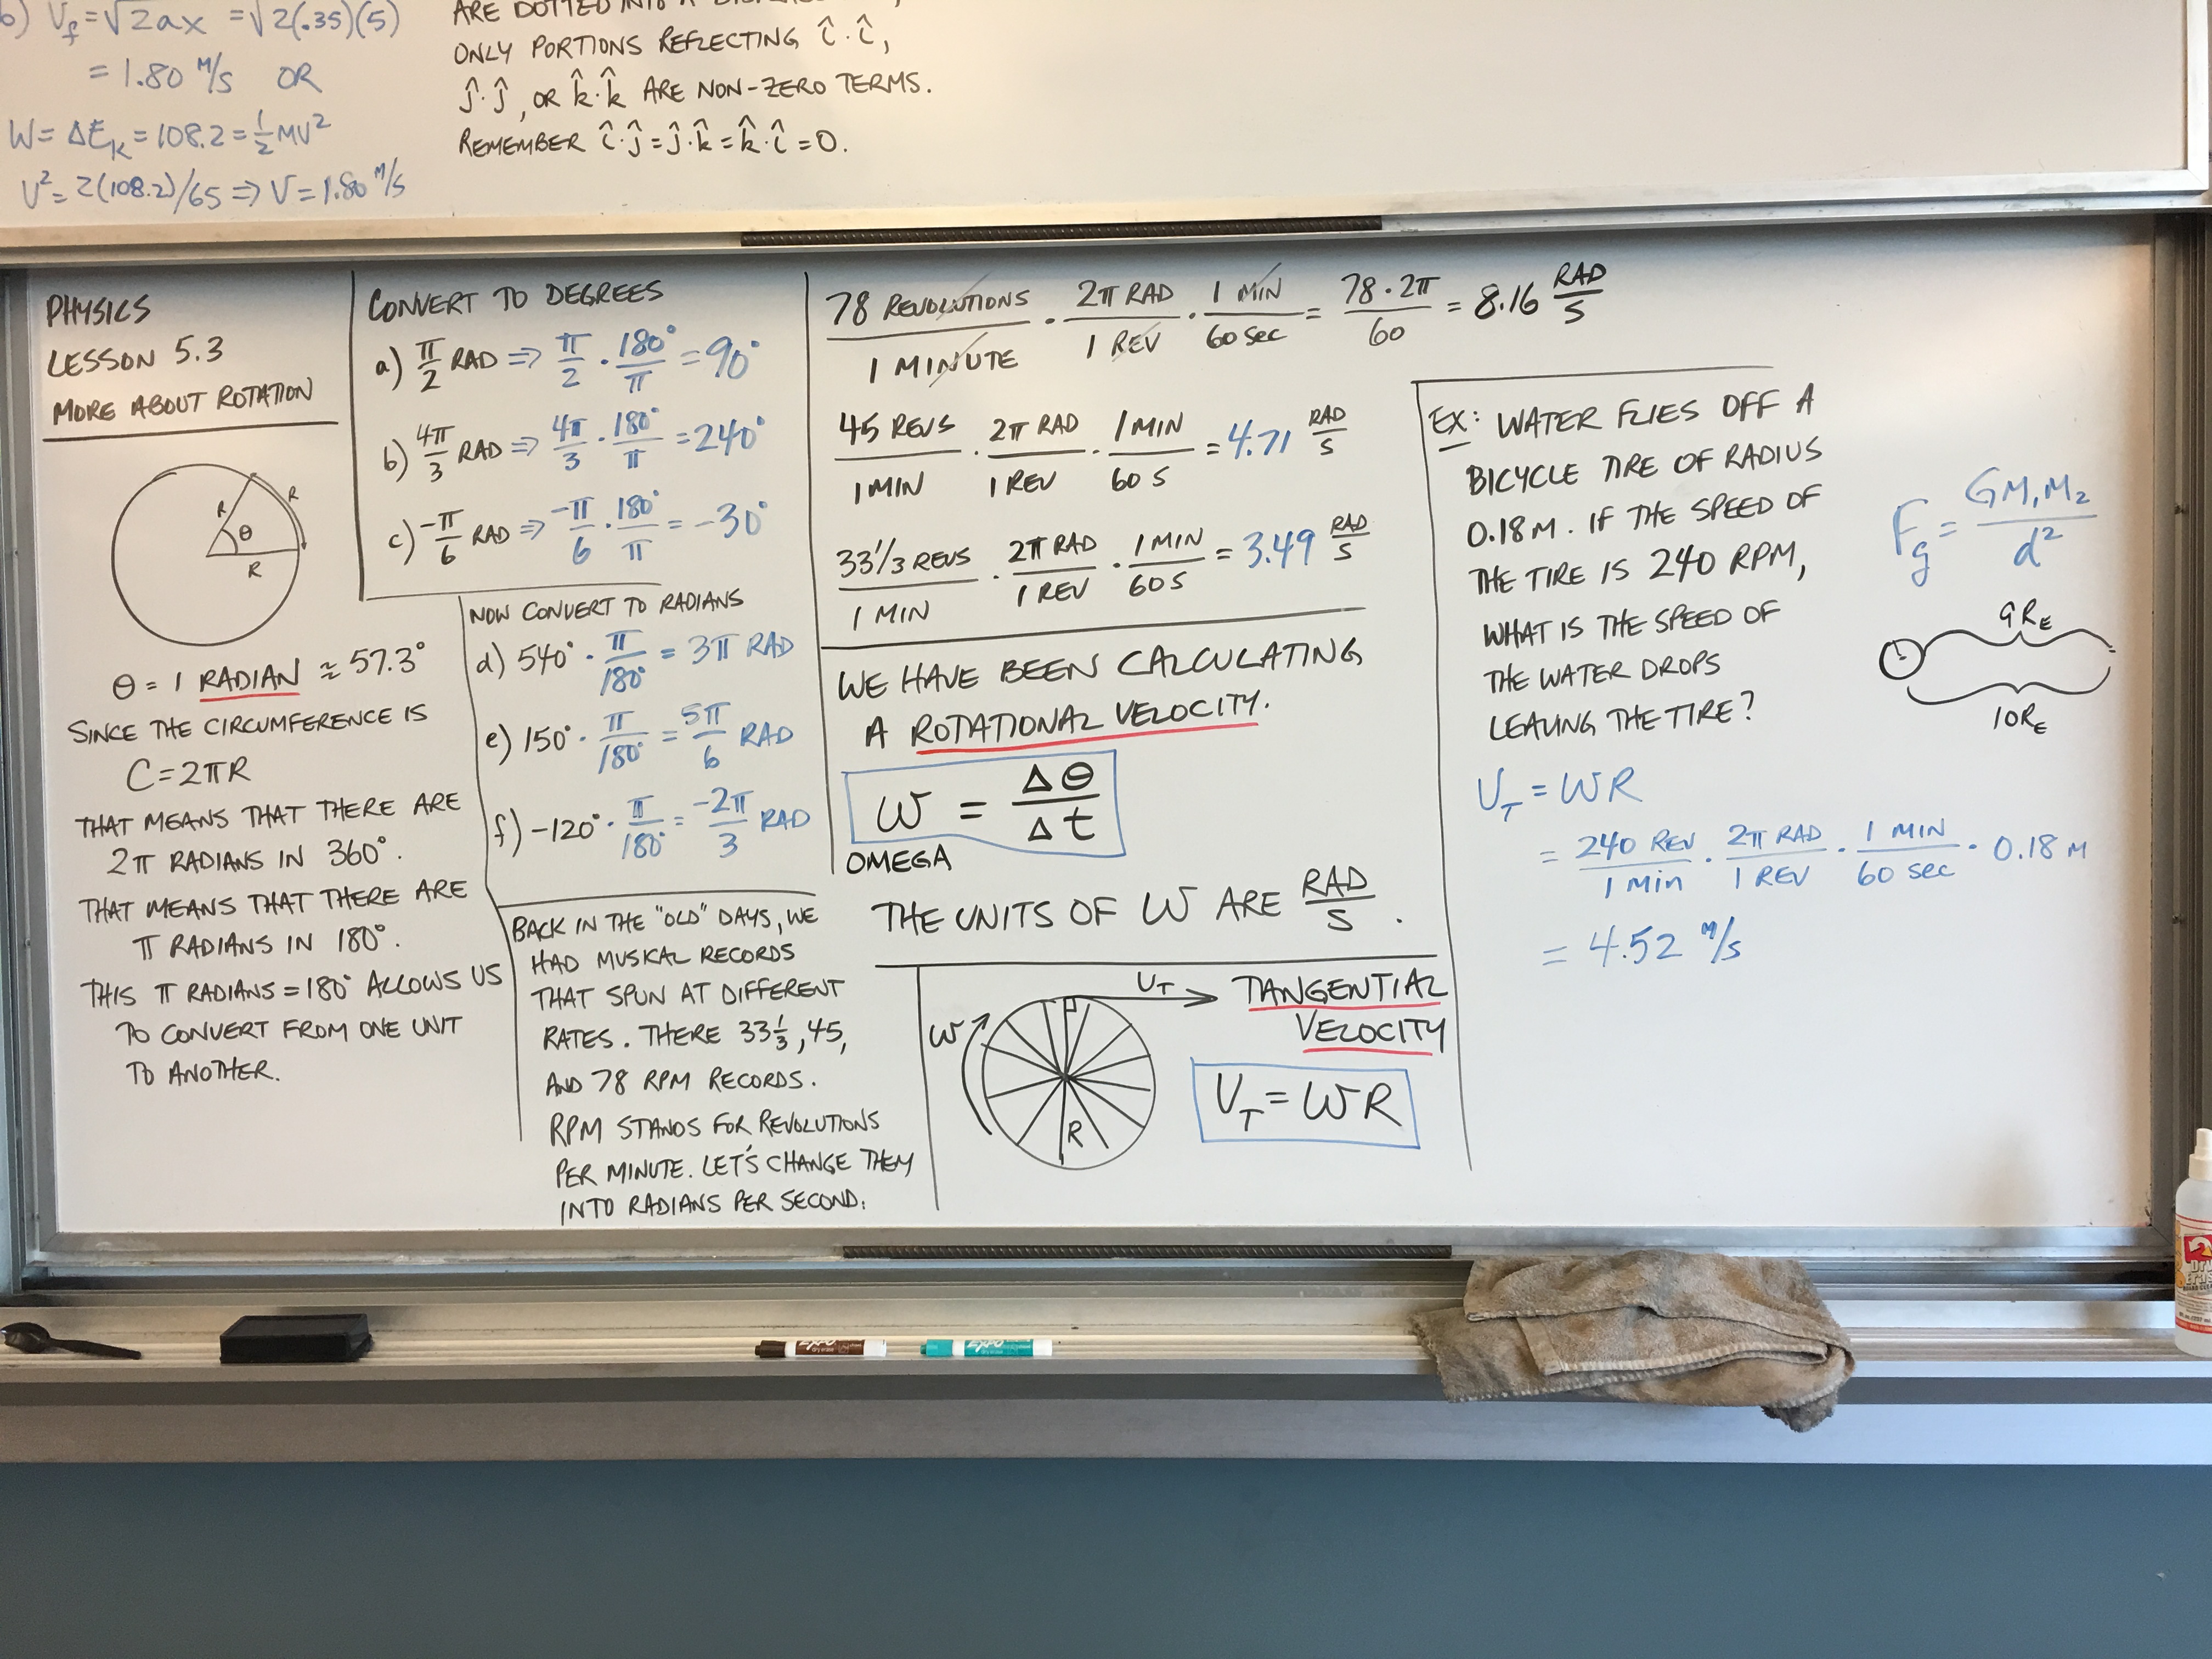 b) V_f = √2ax = √2(.35)(5)
= 1.80 M/S OR
W = ΔE_K = 108.2 = ½MV²
V² = 2(108.2)/65 ⇒ V = 1.80 M/S
ARE DOTTED INTO A
ONLY PORTIONS REFLECTING î·î,
ĵ·ĵ, OR k̂·k̂ ARE NON-ZERO TERMS.
REMEMBER î·ĵ = ĵ·k̂ = k̂·î = 0.
PHYSICS
LESSON 5.3
MORE ABOUT ROTATION
R
R
θ
R
θ = 1 RADIAN ≈ 57.3°
SINCE THE CIRCUMFERENCE IS
C = 2πR
THAT MEANS THAT THERE ARE
2π RADIANS IN 360°.
THAT MEANS THAT THERE ARE
π RADIANS IN 180°.
THIS π RADIANS = 180° ALLOWS US
TO CONVERT FROM ONE UNIT
TO ANOTHER.
CONVERT TO DEGREES
a) π/2 RAD ⇒ π/2 · 180°/π = 90°
b) 4π/3 RAD ⇒ 4π/3 · 180°/π = 240°
c) -π/6 RAD ⇒ -π/6 · 180°/π = -30°
NOW CONVERT TO RADIANS
d) 540° · π/180° = 3π RAD
e) 150° · π/180° = 5π/6 RAD
f) -120° · π/180° = -2π/3 RAD
BACK IN THE "OLD" DAYS, WE
HAD MUSICAL RECORDS
THAT SPUN AT DIFFERENT
RATES. THERE 33⅓, 45,
AND 78 RPM RECORDS.
RPM STANDS FOR REVOLUTIONS
PER MINUTE. LET'S CHANGE THEM
INTO RADIANS PER SECOND:
78 REVOLUTIONS/1 MINUTE · 2π RAD/1 REV · 1 MIN/60 SEC = 78·2π/60 = 8.16 RAD/S
45 REVS/1 MIN · 2π RAD/1 REV · 1 MIN/60 S = 4.71 RAD/S
33 1/3 REVS/1 MIN · 2π RAD/1 REV · 1 MIN/60 S = 3.49 RAD/S
WE HAVE BEEN CALCULATING
A ROTATIONAL VELOCITY.
ω = Δθ/Δt
OMEGA
THE UNITS OF ω ARE RAD/S.
ω
R
V_T
TANGENTIAL
VELOCITY
V_T = ωR
EX: WATER FLIES OFF A
BICYCLE TIRE OF RADIUS
0.18 M. IF THE SPEED OF
THE TIRE IS 240 RPM,
WHAT IS THE SPEED OF
THE WATER DROPS
LEAVING THE TIRE?
V_T = ωR
= 240 REV/1 MIN · 2π RAD/1 REV · 1 MIN/60 SEC · 0.18 M
= 4.52 M/S
F_g = GM₁M₂/d²
9R_E
10R_E
EXPO
EXPO